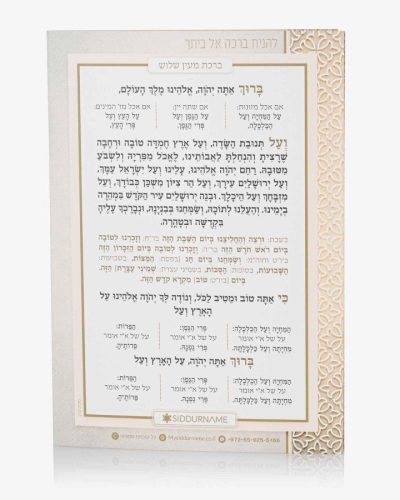 להניח ברכה אל ביתך
ברכת מעין שלוש
בָּרוּךְ אַתָּה יְהֹוָה, אֱלֹהֵינוּ מֶלֶךְ הָעוֹלָם,
אם אכל מזונות: אם שתה יין: אם אכל מז' המינים:
עַל הַמִּחְיָה וְעַל הַכַּלְכָּלָה. עַל הַגֶּפֶן וְעַל פְּרִי הַגֶּפֶן. עַל הָעֵץ וְעַל פְּרִי הָעֵץ.
וְעַל תְּנוּבַת הַשָּׂדֶה, וְעַל אֶרֶץ חֶמְדָּה טוֹבָה וּרְחָבָה
שֶׁרָצִיתָ וְהִנְחַלְתָּ לַאֲבוֹתֵינוּ, לֶאֱכֹל מִפִּרְיָהּ וְלִשְׂבֹּעַ
מִטּוּבָהּ. רַחֵם יְהֹוָה אֱלֹהֵינוּ, עָלֵינוּ וְעַל יִשְׂרָאֵל עַמָּךְ,
וְעַל יְרוּשָׁלַיִם עִירָךְ, וְעַל הַר צִיּוֹן מִשְׁכַּן כְּבוֹדָךְ, וְעַל
מִזְבָּחָךְ וְעַל הֵיכָלָךְ. וּבְנֵה יְרוּשָׁלַיִם עִיר הַקֹּדֶשׁ בִּמְהֵרָה
בְיָמֵינוּ. וְהַעֲלֵנוּ לְתוֹכָהּ, וְשַׂמְּחֵנוּ בְּבִנְיָנָהּ, וּנְבָרְכָךְ עָלֶיהָ
בִּקְדֻשָּׁה וּבְטָהֳרָה.
בשבת: וּרְצֵה וְהַחֲלִיצֵנוּ בְּיוֹם הַשַּׁבָּת הַזֶּה. בר"ח: וְזָכְרֵנוּ לְטוֹבָה
בְּיוֹם רֹאשׁ חֹדֶשׁ הַזֶּה. בר"ה: וְזָכְרֵנוּ לְטוֹבָה בְּיוֹם הַזִּכָּרוֹן הַזֶּה.
וְשַׂמְּחֵנוּ בְּיוֹם חַג (בפסח: הַמַּצּוֹת, בשבועות:
הַשָּׁבוּעוֹת, בסוכות: הַסֻּכּוֹת, בשמיני עצרת: שְׁמִינִי עֲצֶרֶת) הַזֶּה.
בְּיוֹם (ביו"ט: טוֹב) מִקְרָא קֹדֶשׁ הַזֶּה.
כִּי אַתָּה טוֹב וּמֵטִיב לַכֹּל, וְנוֹדֶה לְּךָ יְהֹוָה אֱלֹהֵינוּ עַל
הָאָרֶץ וְעַל
הַמִּחְיָה וְעַל הַכַּלְכָּלָה: פְּרִי הַגֶּפֶן: הַפֵּרוֹת:
על של א"י אומר על של א"י אומר על של א"י אומר
מִחְיָתָהּ וְעַל כַּלְכָּלָתָהּ. פְּרִי גַפְנָהּ. פֵּרוֹתֶיהָ.
בָּרוּךְ אַתָּה יְהֹוָה, עַל הָאָרֶץ וְעַל
הַמִּחְיָה וְעַל הַכַּלְכָּלָה: פְּרִי הַגֶּפֶן: הַפֵּרוֹת:
על של א"י אומר על של א"י אומר על של א"י אומר
מִחְיָתָהּ וְעַל כַּלְכָּלָתָהּ. פְּרִי גַפְנָהּ. פֵּרוֹתֶיהָ.
SIDDURNAME
Mysiddurname.co.il